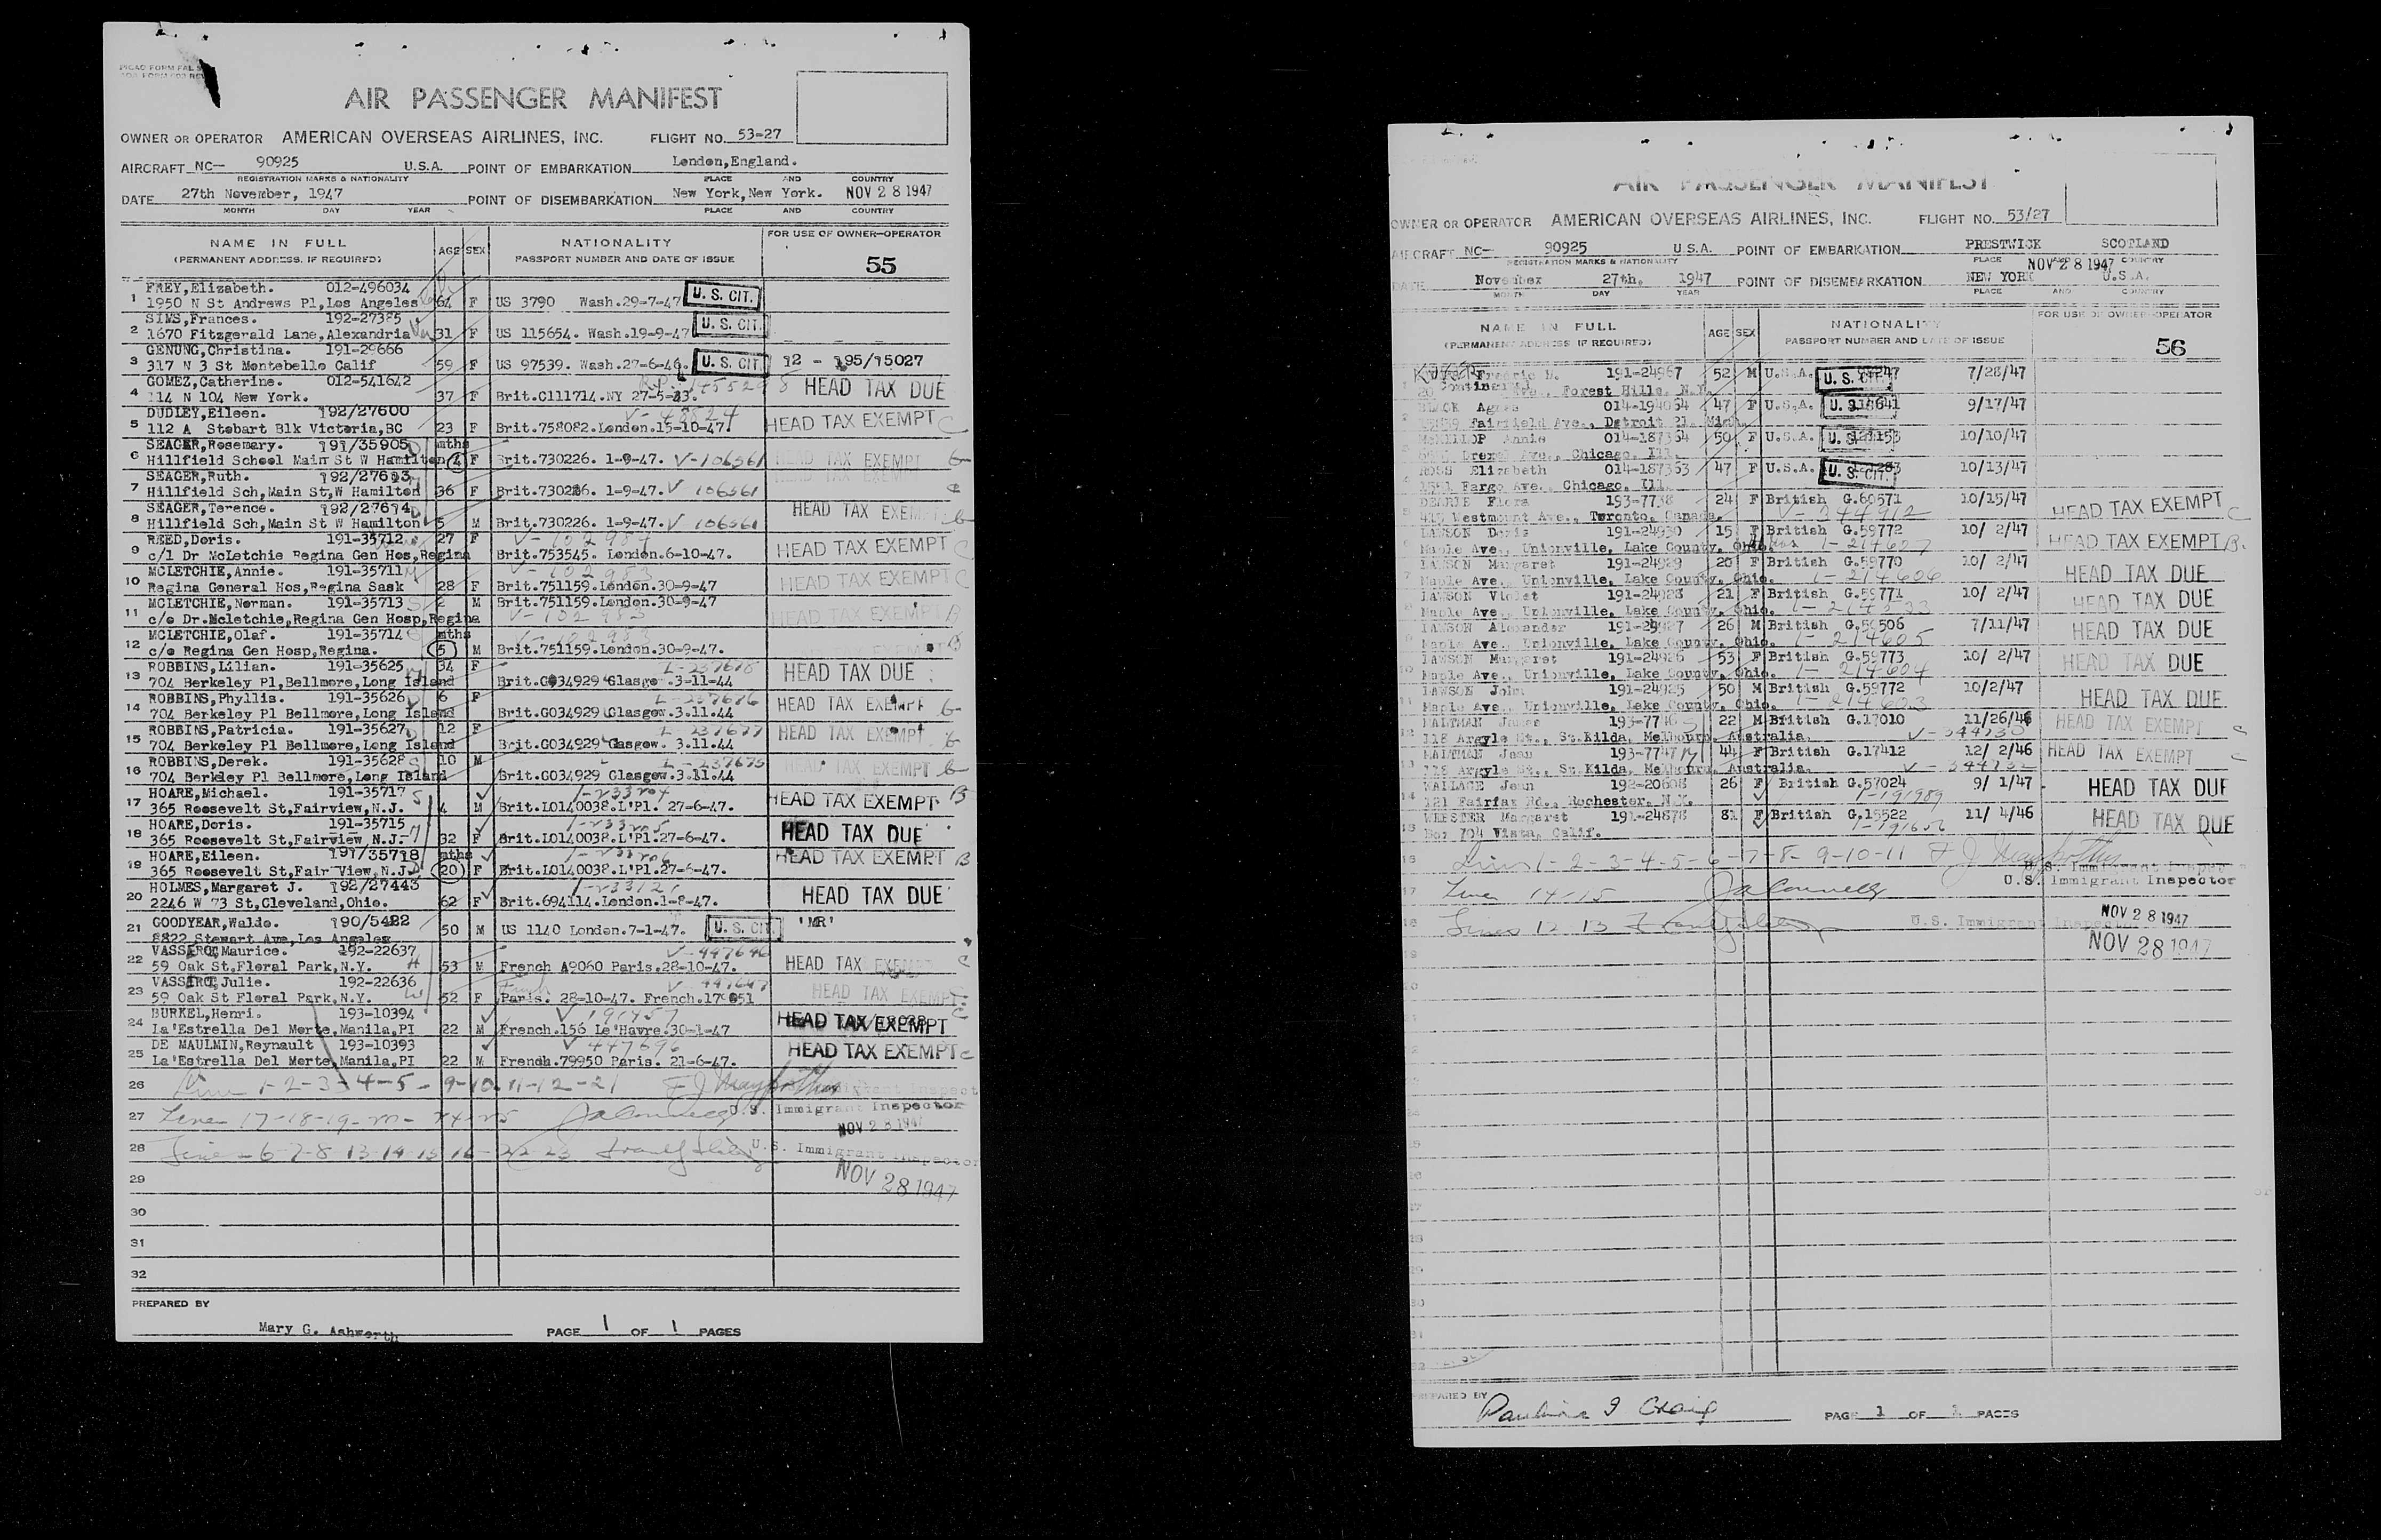 AIR PASSENGER MANIFEST
OWNER OR OPERATOR AMERICAN OVERSEAS AIRLINES, INC. FLIGHT NO. 53-27
AIRCRAFT NC- 90925 U.S.A. POINT OF EMBARKATION London,England.
REGISTRATION MARKS & NATIONALITY PLACE AND COUNTRY
DATE 27th November, 1947 POINT OF DISEMBARKATION New York,New York. NOV 28 1947
MONTH DAY YEAR PLACE AND COUNTRY
NAME IN FULL AGE SEX NATIONALITY FOR USE OF OWNER-OPERATOR
(PERMANENT ADDRESS. IF REQUIRED) PASSPORT NUMBER AND DATE OF ISSUE 55
FREY,Elizabeth. 012-496034
1 1950 N St Andrews Pl,Los Angeles 64 F US 3790 Wash.29-7-47 U. S. CIT.
SIMS,Frances. 192-27385
2 1670 Fitzgerald Lane,Alexandria 31 F US 115654. Wash.19-9-47 U. S. CIT.
GENUNG,Christina. 191-29666
3 317 N 3 St Montebello Calif 59 F US 97539. Wash.27-6-4 U. S. CIT. 12 - 195/15027
GOMEZ,Catherine. 012-541642
4 114 N 104 New York. 37 F Brit.C111714.NY 27-5- HEAD TAX DUE
DUDLEY,Eileen. 192/27600
5 112 A Stobart Blk Victoria,BC 23 F Brit.758082.London.15-10-47. HEAD TAX EXEMPT C
SEAGER,Rosemary. 191/35905 mths
6 Hillfield School Main St W Hamilton 4 F Brit.730226. 1-9-47. V-106561 HEAD TAX EXEMPT
SEAGER,Ruth. 192/27613
7 Hillfield Sch,Main St,W Hamilton 36 F Brit.730226. 1-9-47. V 106561
SEAGER,Terence. 192/27614
8 Hillfield Sch,Main St W Hamilton 5 M Brit.730226. 1-9-47. V 106561 HEAD TAX EXEMPT
REED,Doris. 191-35712 27 F V-102984
9 c/l Dr McLetchie Regina Gen Hos,Regina Brit.753545. London.6-10-47. HEAD TAX EXEMPT C
MCLETCHIE,Annie. 191-35711 V-102983
10 Regina General Hos,Regina Sask 28 F Brit.751159.London.30-9-47 HEAD TAX EXEMPT C
MCLETCHIE,Norman. 191-35713 2 M Brit.751159.London.30-9-47
11 c/o Dr.Mcletchie,Regina Gen Hosp,Regina V-102983 HEAD TAX EXEMPT B
MCLETCHIE,Olaf. 191-35714 mths V-102983
12 c/o Regina Gen Hosp,Regina. 5 M Brit.751159.London.30-9-47. B
ROBBINS,Lilian. 191-35625 34 F L-237678
13 704 Berkeley Pl,Bellmore,Long Island Brit.G034929 Glasgo .3-11-44 HEAD TAX DUE
ROBBINS,Phyllis. 191-35626 6 F L-237676
14 704 Berkeley Pl Bellmore,Long Island Brit.G034929 Glasgow.3.11.44 HEAD TAX EXEMPT
ROBBINS,Patricia. 191-35627 12 F L-237677
15 704 Berkeley Pl Bellmore,Long Island Brit.G034929 Gasgow. 3.11.44 HEAD TAX EXEMPT
ROBBINS,Derek. 191-35628 10 M L-237675
16 704 Berkley Pl Bellmore,Long Island Brit.G034929 Glasgow.3.11.44 HEAD TAX EXEMPT
HOARE,Michael. 191-35717
17 365 Roosevelt St,Fairview,N.J. 4 M Brit.L0140038.L'Pl. 27-6-47. HEAD TAX EXEMPT B
HOARE,Doris. 191-35715
18 365 Roosevelt St,Fairview N.J. 32 F Brit.L0140038.L'Pl.27-6-47. HEAD TAX DUE
HOARE,Eileen. 191/35718 mths
19 365 Roosevelt St,Fair View,N.J. 20 F Brit.L0140038.L'Pl.27-6-47. HEAD TAX EXEMPT B
HOLMES,Margaret J. 192/27443
20 2246 W 73 St,Cleveland,Ohio. 62 F Brit.694114.London.1-8-47. HEAD TAX DUE
GOODYEAR,Waldo. 190/5482
21 8822 Stewart Ave,Los Angeles 50 M US 1140 London.7-1-47. U. S. CIT 'MR'
Maurice. 192-22637 V-447646
22 59 Oak St.Floral Park,N.Y. H 53 M French A9060 Paris.28-10-47. HEAD TAX EXEMPT C
Julie. 192-22636 V 447647
23 59 Oak St Floral Park,N.Y. W 52 F Paris. 28-10-47. French. HEAD TAX EXEMPT
BURKEL,Henri. 193-10394 V 191457
24 La'Estrella Del Morte,Manila,PI 22 M French.156 Le'Havre.30-1-47 HEAD TAX EXEMPT C
DE MAULMIN,Reynault 193-10393 V 447696
25 La'Estrella Del Morte Manila,PI 22 M French.79950 Paris. 21-6-47. HEAD TAX EXEMPT C
26 Line 1-2-3-4-5-9-10-11-12-21
27 Line 17-18-19-20-24-25 U.S. Immigrant Inspector
NOV 28 1947
28 Line-6-7-8 13-14-15 16-22 23 U.S. Immigrant Inspector
29 NOV 28 1947
30
31
32
PREPARED BY
Mary G. Ashworth PAGE 1 OF 1 PAGES
AIR PASSENGER MANIFEST
OWNER OR OPERATOR AMERICAN OVERSEAS AIRLINES, INC. FLIGHT NO. 53/27
AIRCRAFT NC- 90925 U.S.A. POINT OF EMBARKATION PRESTWICK SCOTLAND
REGISTRATION MARKS & NATIONALITY PLACE NOV 28 1947 COUNTRY
DATE November 27th, 1947 POINT OF DISEMBARKATION NEW YORK U.S.A.
MONTH DAY YEAR PLACE AND COUNTRY
NAME IN FULL AGE SEX NATIONALITY FOR USE OF OWNER-OPERATOR
(PERMANENT ADDRESS IF REQUIRED) PASSPORT NUMBER AND DATE OF ISSUE 56
191-24967 52 M U.S.A. U. S. CIT. 7/28/47
Forest Hills, N.Y.
BLACK Agnes 014-194054 47 F U.S.A. U. S. 9/17/47
Fairfield Ave., Detroit
Annie 014-187364 50 F U.S.A. U. S. 10/10/47
Drexel Ave., Chicago, Ill.
ROSS Elizabeth 014-187363 47 F U.S.A. U. S. CIT. 10/13/47
Fargo Ave., Chicago, Ill.
Flora 193-7738 24 F British G.60571 10/15/47 HEAD TAX EXEMPT C
415 Westmount Ave., Toronto, Canada. V-244912
LAWSON Doris 191-24930 15 F British G.59772 10/ 2/47
Maple Ave., Unionville, Lake County, Ohio. HEAD TAX EXEMPT B.
LAWSON Margaret 191-24929 20 F British G.59770 10/ 2/47
Maple Ave., Unionville, Lake County, Ohio. I-214606 HEAD TAX DUE
LAWSON Violet 191-24928 21 F British G.59771 10/ 2/47
Maple Ave., Unionville, Lake County, Ohio. HEAD TAX DUE
LAWSON Alexander 191-24927 26 M British 7/11/47
Maple Ave., Unionville, Lake County, Ohio. I-214605 HEAD TAX DUE
LAWSON Margaret 191-24926 53 F British G.59773 10/ 2/47
Maple Ave., Unionville, Lake County, Ohio. I-214604 HEAD TAX DUE
LAWSON John 191-24925 50 M British G.59772 10/2/47
Maple Ave., Unionville, Lake County, Ohio. I-214603 HEAD TAX DUE
MAITMAN James 193-7746 22 M British G.17010 11/26/46 HEAD TAX EXEMPT C
118 Argyle St., St.Kilda, Melbourn, Australia.
MAITMAN Jean 193-7747 44 F British G.17412 12/ 2/46 HEAD TAX EXEMPT C
Argyle St., St.Kilda, Melbourn, Australia.
WALLACE Jean 192-20608 26 F British G.57024 9/ 1/47 HEAD TAX DUE
14 121 Fairfax Rd., Rochester, N.Y. I-191989
WEBSTER Margaret 191-24878 81 F British G.15522 11/ 4/46 HEAD TAX DUE
Box 704 Vista, Calif.
Lines 1-2-3-4-5-6-7-8-9-10-11
Line 14-15 U.S. Immigrant Inspector
Lines 12 13 U.S. Immigrant Inspector
NOV 28 1947
NOV 28 1947
PREPARED BY
Pauline I Craig PAGE 1 OF 1 PAGES